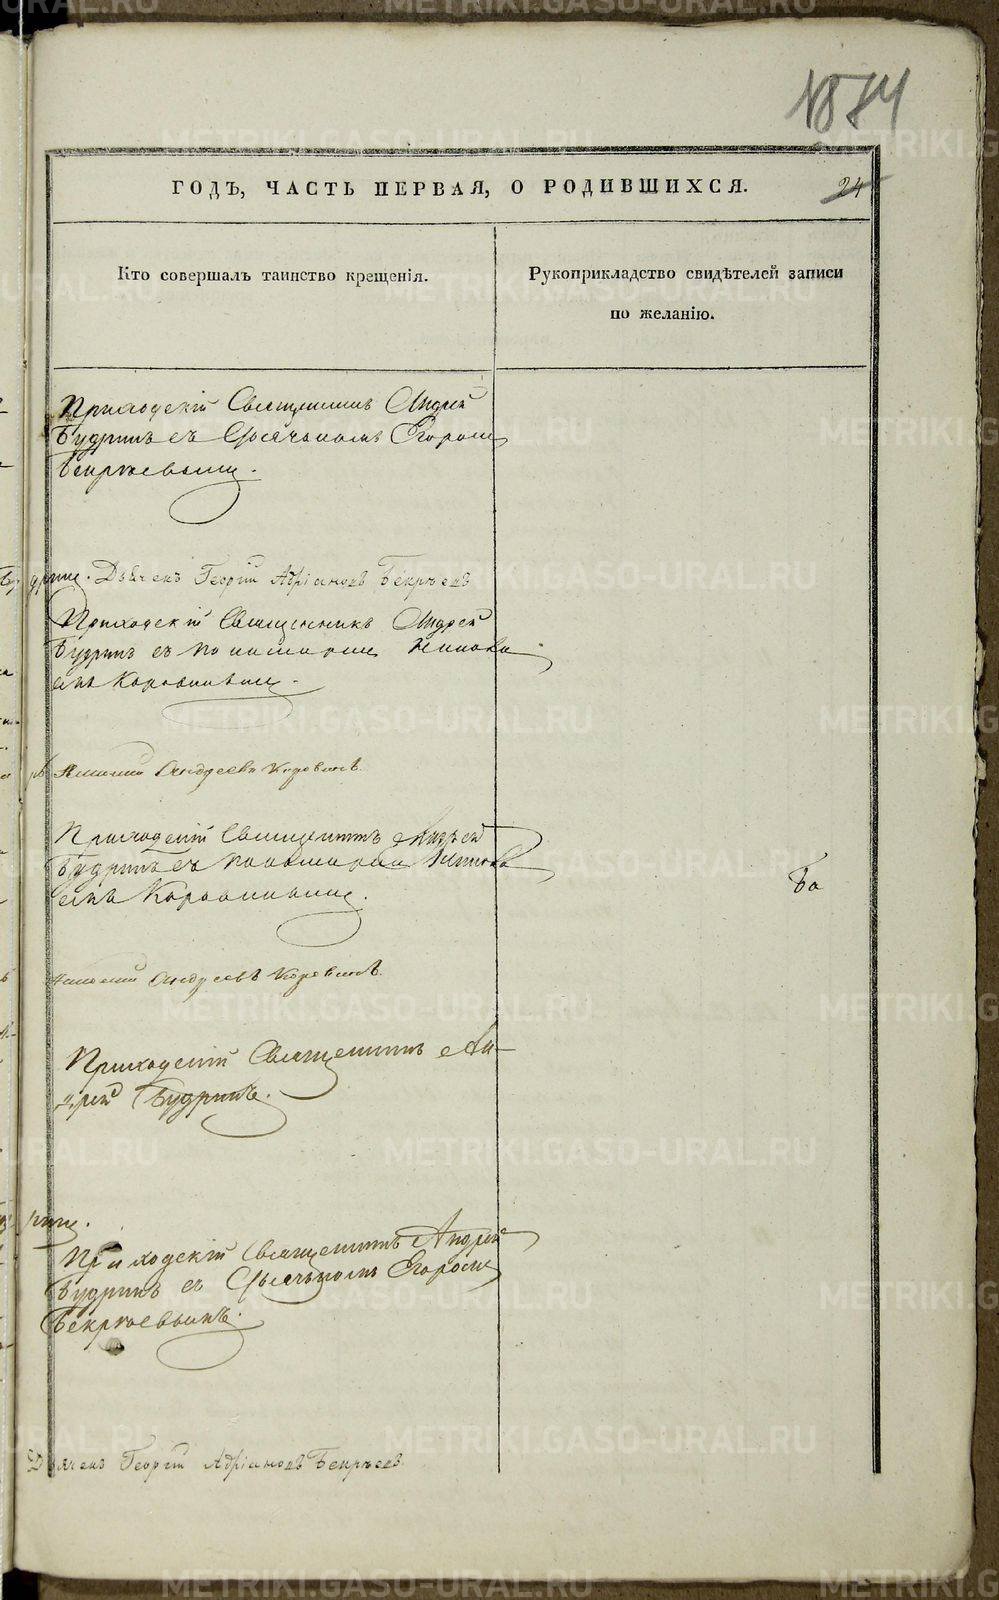 ГОДЪ, ЧАСТЬ ПЕРВАЯ, О РОДИВШИХСЯ.
24
Кто совершалъ таинство крещенія.
Рукоприкладство свидѣтелей записи
по желанію.
Приходскій Священникъ Андрей
Будринъ съ Дьячкомъ Егоромъ
Бекряевымъ.
Дьячекъ Георгій Адріановъ Бекряевъ
Приходскій Священникъ Андрей
Будринъ съ
Коровинымъ.
Андреевъ Коровинъ.
Приходскій Священникъ Андрей
Будринъ съ
Коровинымъ.
Андреевъ Коровинъ.
Приходскій Священникъ Ан-
дрей Будринъ.
Приходскій Священникъ Андрей
Будринъ съ Дьячкомъ Егоромъ
Бекряевымъ.
Дьячекъ Георгій Адріановъ Бекряевъ
METRIKI.GASO-URAL.RU